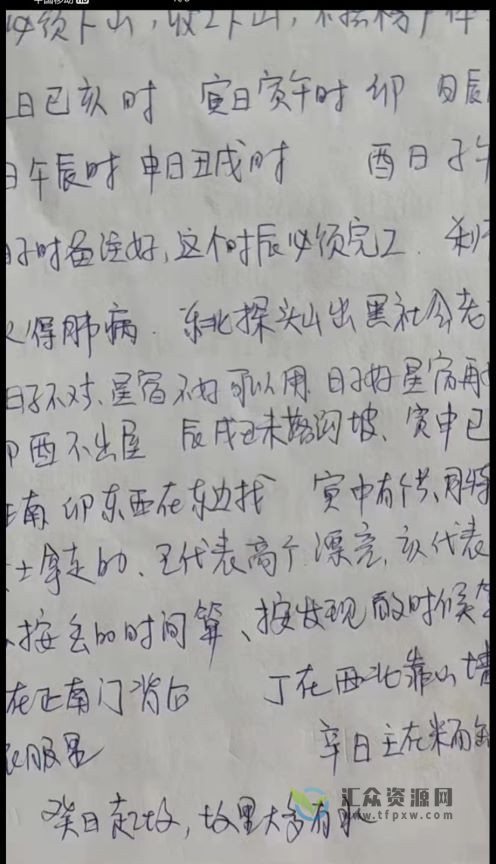 必须下山，收工下山，不
日巳亥时 寅日寅午时 卯 日辰
日午辰时 申日丑戌时 酉日子午
子时备注好，这个时辰必须完工. 利于
得肺病. 东北探头山出黑社会老
日子不对、星宿不好可以用、日子好星宿再
卯酉不出屋 辰戌丑未路沟坡、寅申巳
正南 卯东西在东边找 寅中有个
士拿走的、壬代表高个 漂亮、亥代表
按丢的时间算、按发现的时候
在正南门背后 丁在西北靠山墙
衣服里 辛日主在米面缸
癸日起坟，坟里大多有水
汇众资源网
www.tfpxw.com